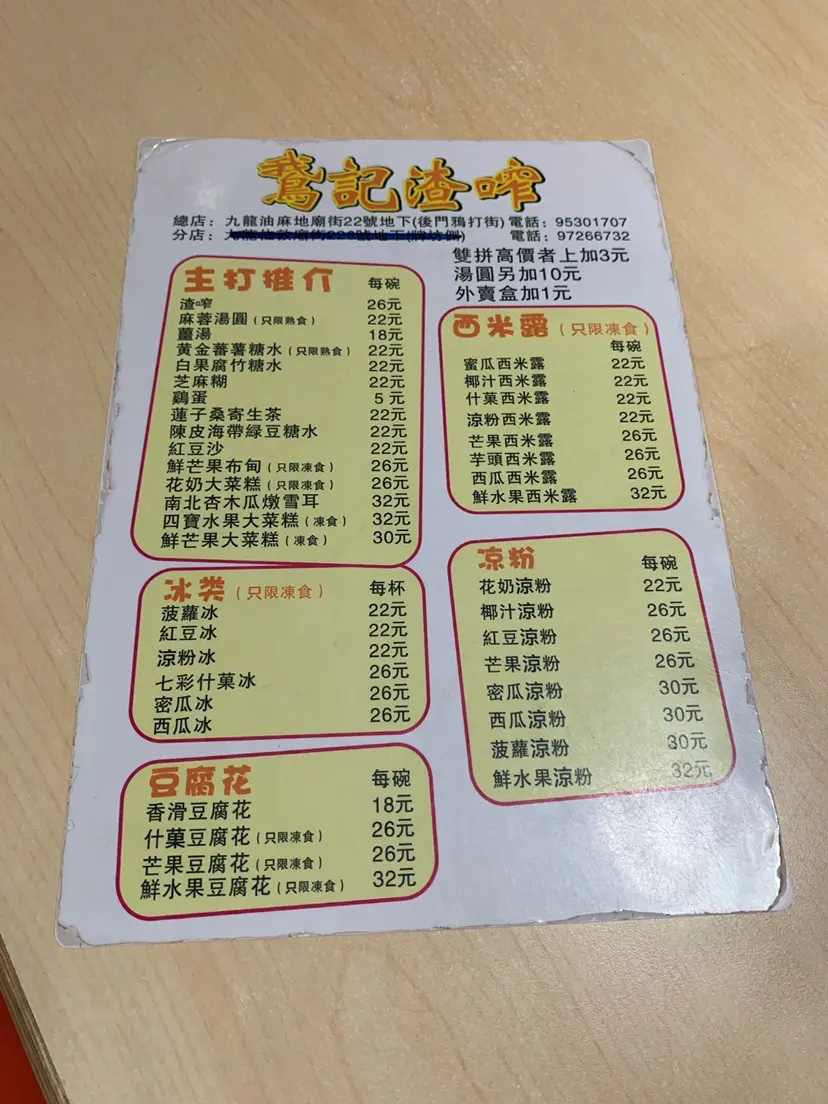 鵞記渣咋
總店：九龍油麻地廟街22號地下(後門鴉打街) 電話：95301707
分店： 電話：97266732
雙拼高價者上加3元
湯圓另加10元
外賣盒加1元
主打推介 每碗
渣咋 26元
麻蓉湯圓(只限熟食) 22元
薑湯 18元
黃金蕃薯糖水(只限熟食) 22元
白果腐竹糖水 22元
芝麻糊 22元
鷄蛋 5元
蓮子桑寄生茶 22元
陳皮海帶綠豆糖水 22元
紅豆沙 22元
鮮芒果布甸(只限凍食) 26元
花奶大菜糕(只限凍食) 26元
南北杏木瓜燉雪耳 32元
四寶水果大菜糕(凍食) 32元
鮮芒果大菜糕(凍食) 30元
西米露(只限凍食)
每碗
蜜瓜西米露 22元
椰汁西米露 22元
什菓西米露 22元
涼粉西米露 22元
芒果西米露 26元
芋頭西米露 26元
西瓜西米露 26元
鮮水果西米露 32元
冰类(只限凍食) 每杯
菠蘿冰 22元
紅豆冰 22元
涼粉冰 22元
七彩什菓冰 26元
密瓜冰 26元
西瓜冰 26元
凉粉 每碗
花奶涼粉 22元
椰汁涼粉 26元
紅豆涼粉 26元
芒果涼粉 26元
密瓜涼粉 30元
西瓜涼粉 30元
菠蘿涼粉 30元
鮮水果涼粉 32元
豆腐花 每碗
香滑豆腐花 18元
什菓豆腐花(只限凍食) 26元
芒果豆腐花(只限凍食) 26元
鮮水果豆腐花(只限凍食) 32元